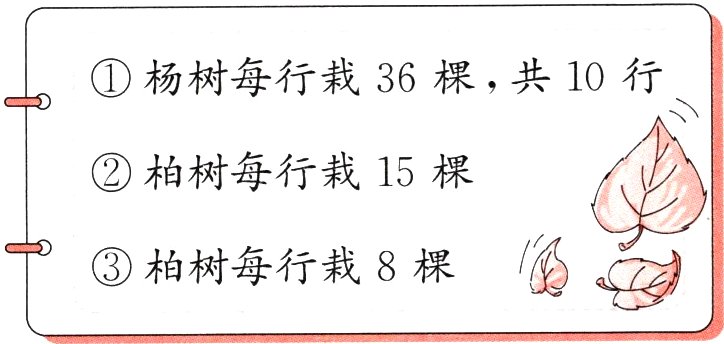 ① 杨树每行栽 36 棵，共 10 行
② 柏树每行栽 15 棵
③ 柏树每行栽 8 棵